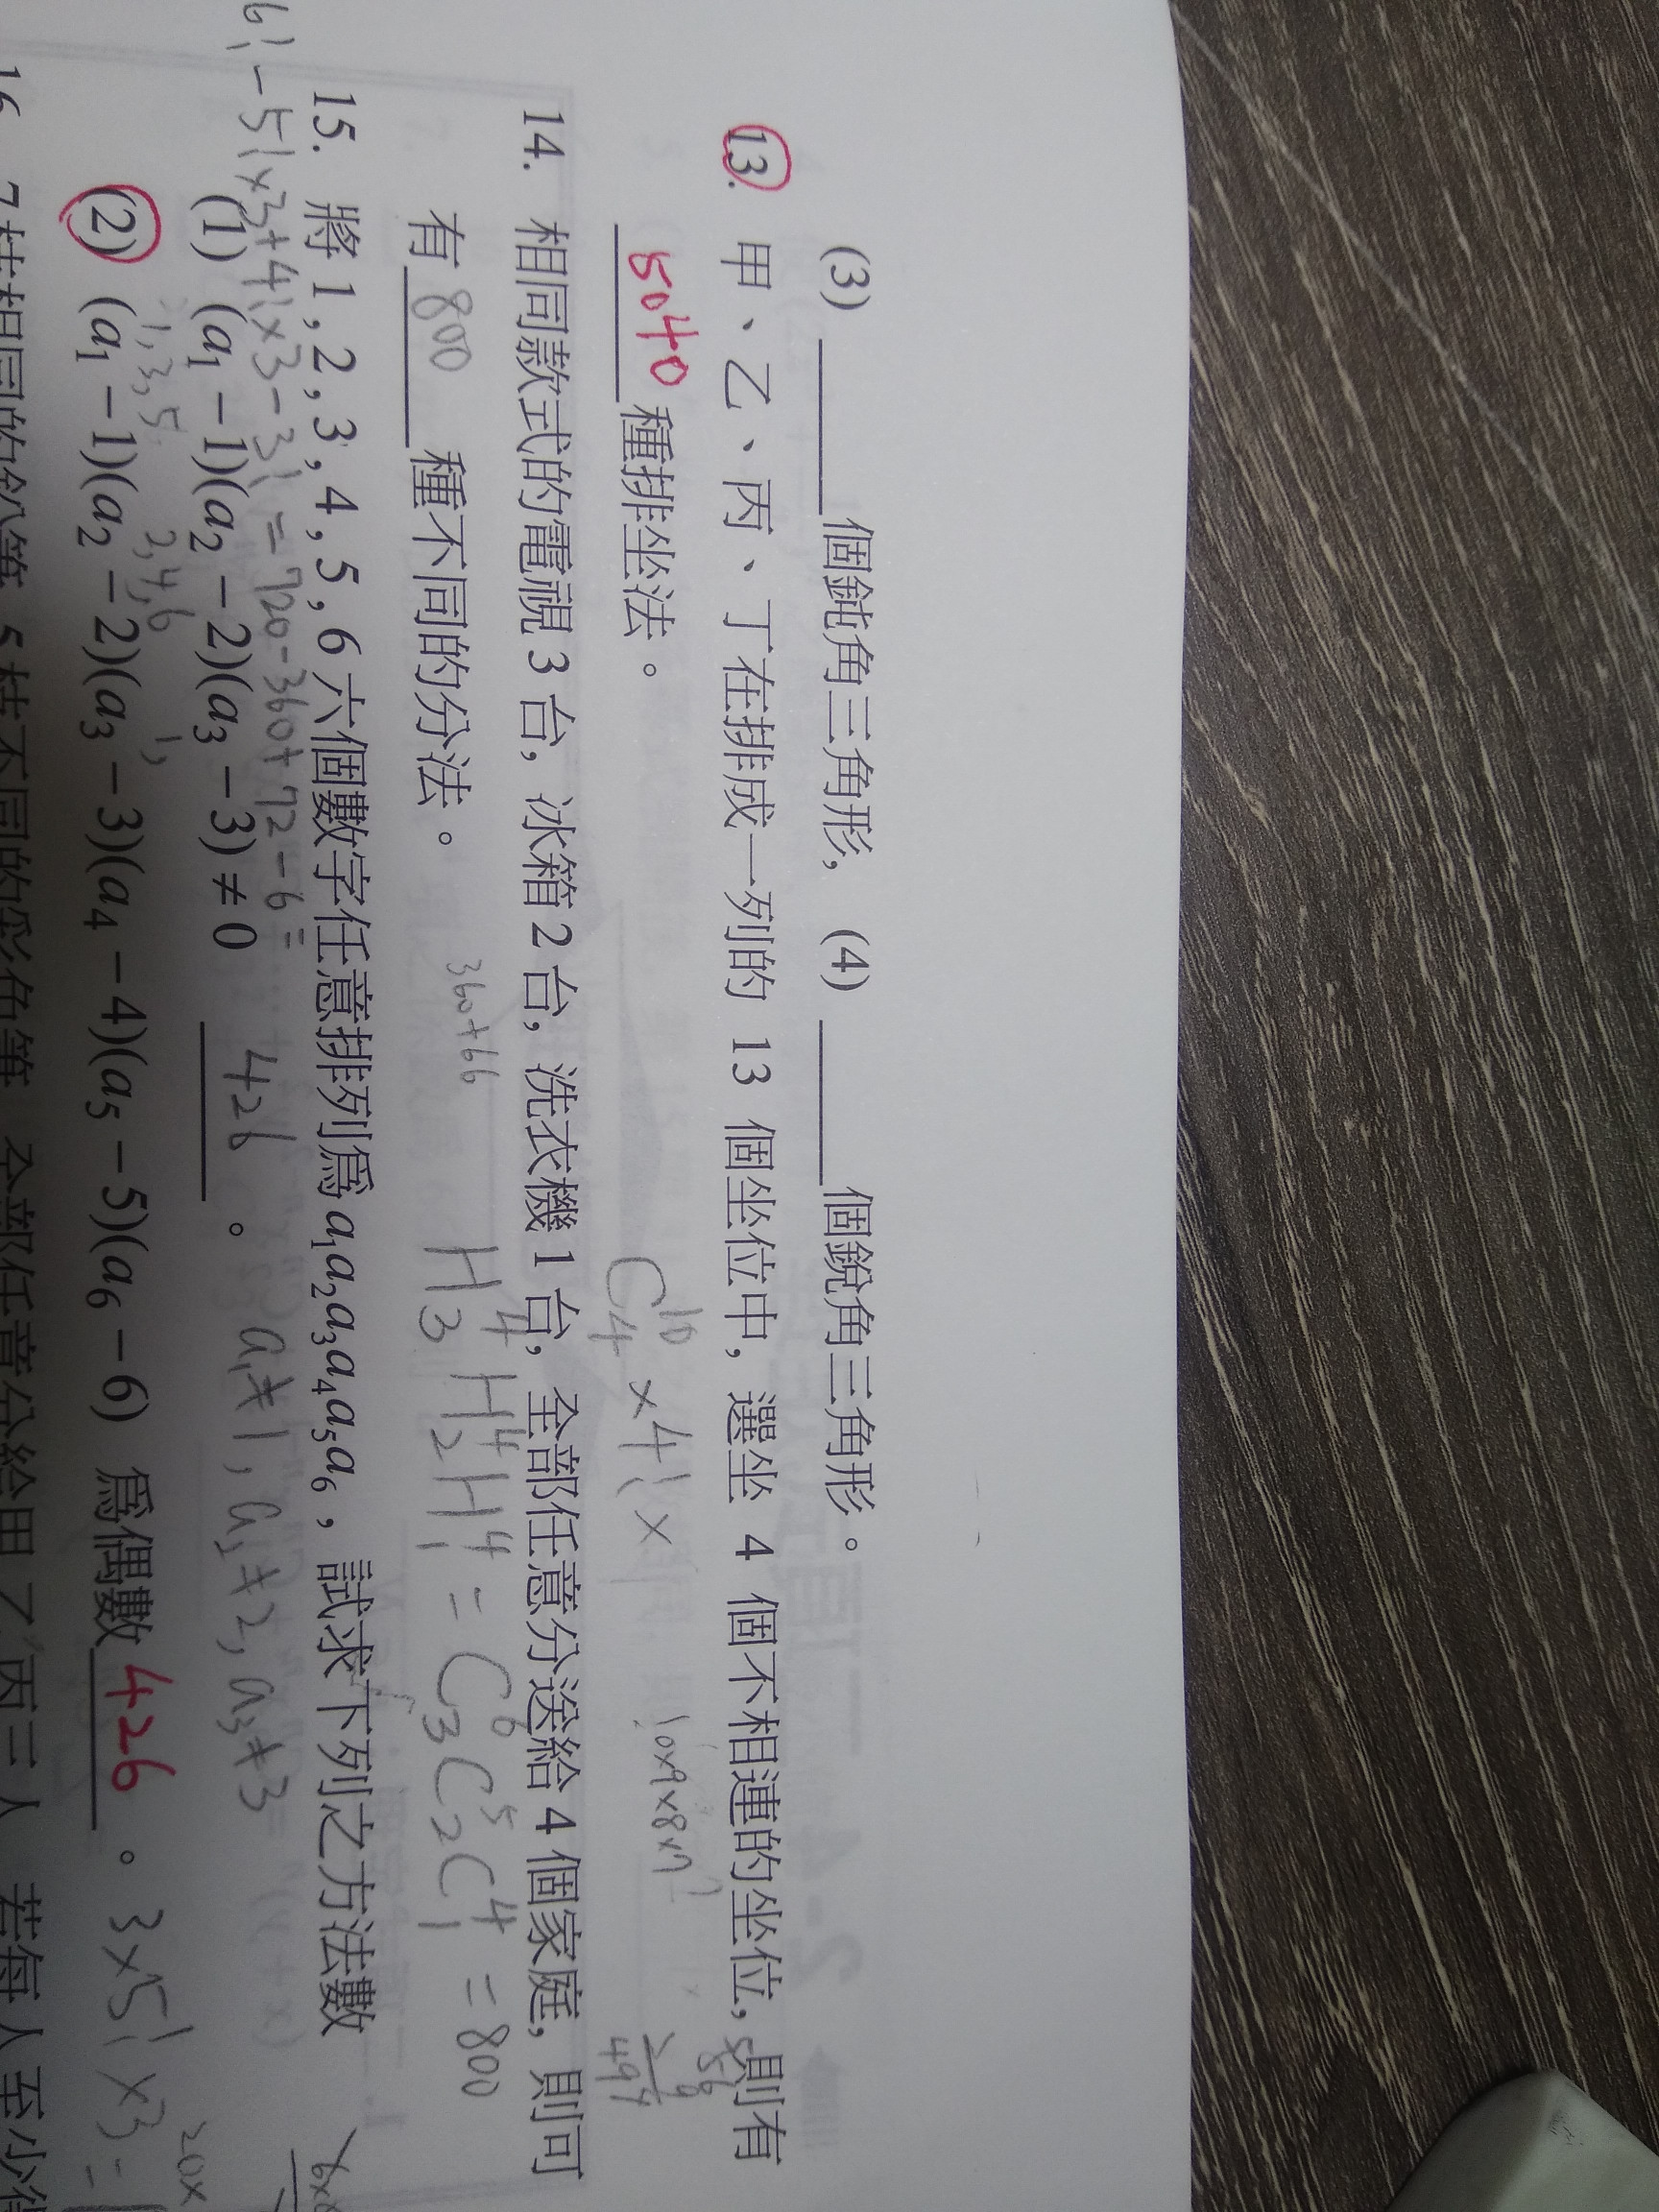 (3) ______ 個鈍角三角形, (4) ______ 個銳角三角形。
13. 甲、乙、丙、丁在排成一列的 13 個坐位中, 選坐 4 個不相連的坐位, 則有
5040 種排坐法。
C¹⁰₄ × 4! ×
10×9×8×7
14. 相同款式的電視 3 台, 冰箱 2 台, 洗衣機 1 台, 全部任意分送給 4 個家庭, 則可
有 800 種不同的分法。
H⁴₃ H⁴₂ H⁴₁ = C⁶₃ C⁵₂ C⁴₁ = 800
360+66
15. 將 1 , 2 , 3 , 4 , 5 , 6 六個數字任意排列爲 a₁a₂a₃a₄a₅a₆ , 試求下列之方法數
6! − 5!×3 + 4!×3 − 3! = 720 − 360 + 72 − 6 =
(1) (a₁ − 1)(a₂ − 2)(a₃ − 3) ≠ 0 426 。
a₁≠1, a₂≠2, a₃≠3
1, 3, 5 2, 4, 6 1,
(2) (a₁ − 1)(a₂ − 2)(a₃ − 3)(a₄ − 4)(a₅ − 5)(a₆ − 6) 爲偶數 426 。
3×5!×3 =